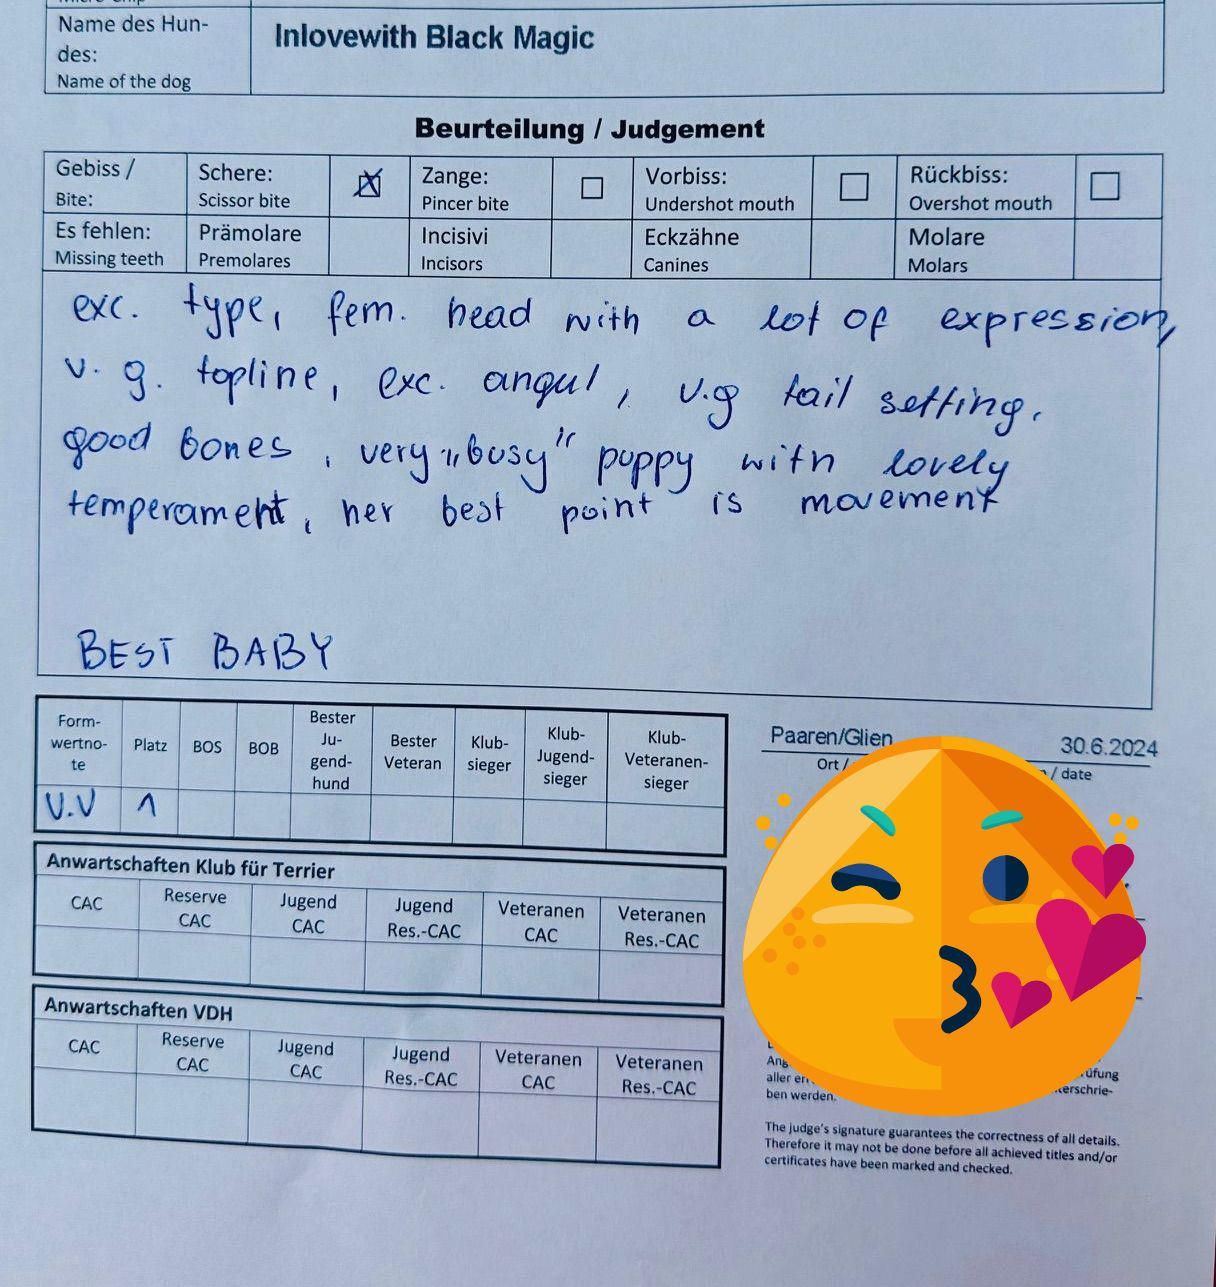 Name des Hun-
des:
Name of the dog
Inlovewith Black Magic
Beurteilung / Judgement
Gebiss /
Bite:
Schere:
Scissor bite
Zange:
Pincer bite
Vorbiss:
Undershot mouth
Rückbiss:
Overshot mouth
Es fehlen:
Missing teeth
Prämolare
Premolares
Incisivi
Incisors
Eckzähne
Canines
Molare
Molars
exc. type, fem. head with a lot of expression,
v. g. topline, exc. angul, v.g tail setting.
good bones, very „busy" puppy with lovely
temperament, her best point is movement
BEST BABY
Form-
wertno-
te
Platz
BOS
BOB
Bester
Ju-
gend-
hund
Bester
Veteran
Klub-
sieger
Klub-
Jugend-
sieger
Klub-
Veteranen-
sieger
V.V 1
Paaren/Glien 30.6.2024
Ort / / date
Anwartschaften Klub für Terrier
CAC
Reserve
CAC
Jugend
CAC
Jugend
Res.-CAC
Veteranen
CAC
Veteranen
Res.-CAC
Anwartschaften VDH
CAC
Reserve
CAC
Jugend
CAC
Jugend
Res.-CAC
Veteranen
CAC
Veteranen
Res.-CAC
aller
ben werden.
The judge's signature guarantees the correctness of all details.
Therefore it may not be done before all achieved titles and/or
certificates have been marked and checked.